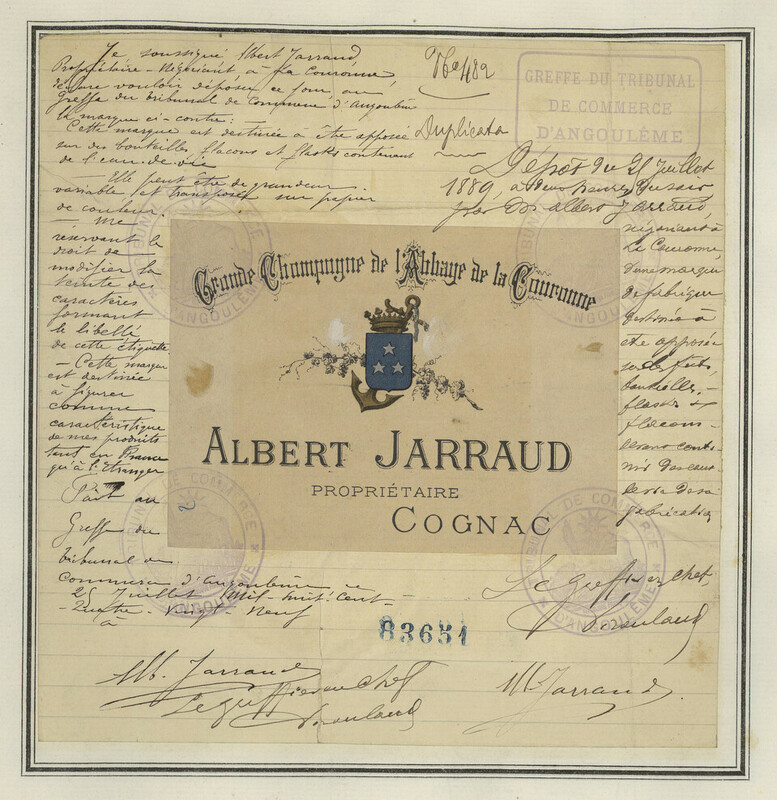 Je soussigné Albert Jarraud,
Propriétaire-Négociant, a La Couronne,
déclare vouloir déposer ce jour, au
Greffe du tribunal de Commerce d'Angoulême
la marque ci-contre :
Cette marque est destinée à être apposée
sur des bouteilles flacons et flasks contenant
de l'eau-de-vie
— Elle peut être de grandeur
variable, et transposée sur papier
de couleur.
— me
réservant le
droit de
modifier la
teinte des
caractères
formant
le libellé
de cette étiquette.
— Cette marque
est destinée
à figurer
comme
caractéristique
de mes produits
tant en France
qu'à l'étranger
Fait au
Greffe du
tribunal de
Commerce d'Angoulême le
25 Juillet Mil-huit-Cent-
-Quatre-Vingt-Neuf
à
Alb. Jarraud
Le Greffier en chef
No 489
Duplicata
GREFFE DU TRIBUNAL
DE COMMERCE
D'ANGOULÊME
Dépôt du 25 Juillet
1889, à deux heures du soir
par Mr Albert Jarraud,
négociant à
La Couronne,
d'une marque
de fabrique
destinée à
être apposée
sur les fûts,
bouteilles,
flasks et
flacons
devant conte-
nir des eaux-
de-vie de sa
fabrication
Le Greffier en chef,
Alb. Jarraud
Grande Champagne de l'Abbaye de la Couronne
ALBERT JARRAUD
PROPRIÉTAIRE
COGNAC
83651
TRIBUNAL DE COMMERCE
D'ANGOULÊME